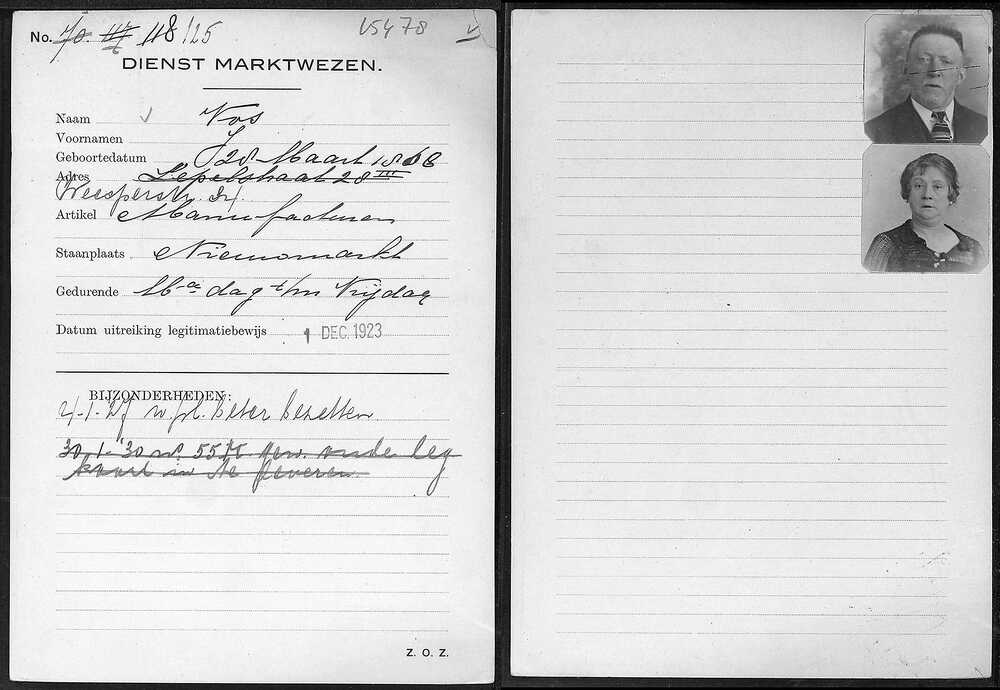 No. 70. 117 118/25 V5478
DIENST MARKTWEZEN.
Naam Vos
Voornamen J
Geboortedatum 28 Maart 1868
Adres Lepelstraat 28 III
Weesperstr.
Artikel Manufacturen
Staanplaats Nieuwmarkt
Gedurende Maandag t/m Vrijdag
Datum uitreiking legitimatiebewijs 1 DEC. 1923
BIJZONDERHEDEN:
4-1-27 w. pl. beter bezetten
30-1-'30 no. 55 gew. oude leg
kaart in te leveren.
Z. O. Z.